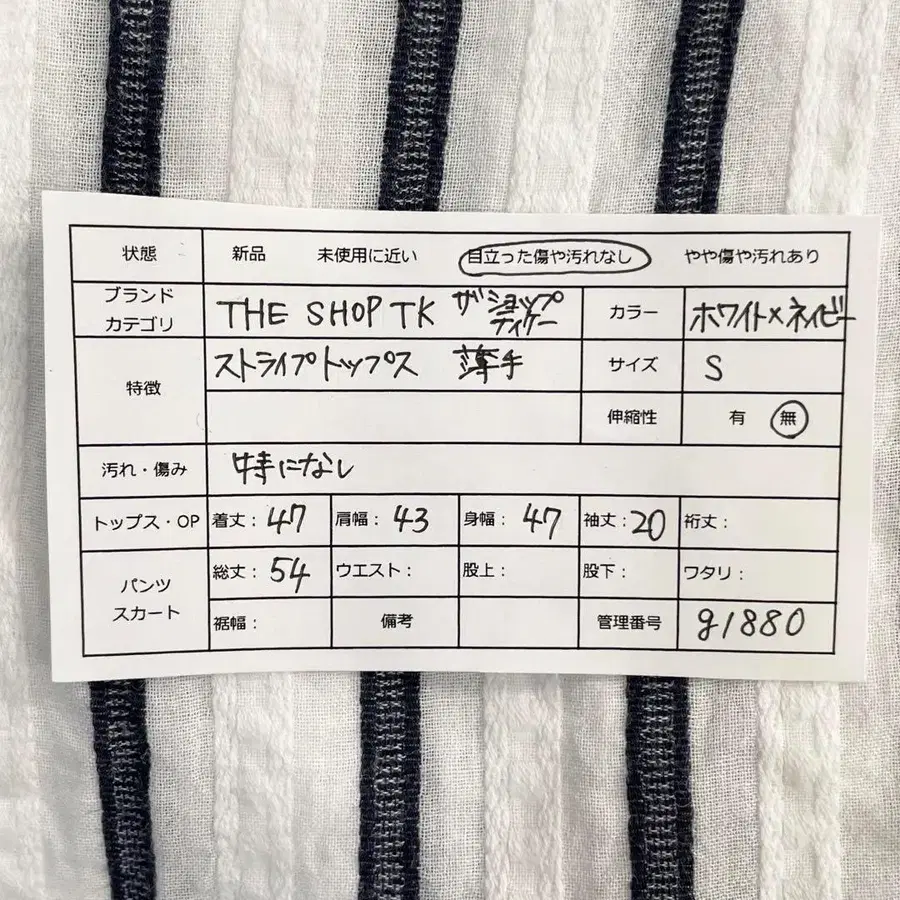 状態 新品 未使用に近い 目立った傷や汚れなし やや傷や汚れあり
ブランド カテゴリ THE SHOP TK ザショップ ティーケー カラー ホワイト×ネイビー
特徴 ストライプトップス 薄手 サイズ S
伸縮性 有 無
汚れ・傷み 特になし
トップス・OP 着丈: 47 肩幅: 43 身幅: 47 袖丈: 20 裄丈:
パンツ スカート 総丈: 54 ウエスト: 股上: 股下: ワタリ:
裾幅: 備考 管理番号 g1880